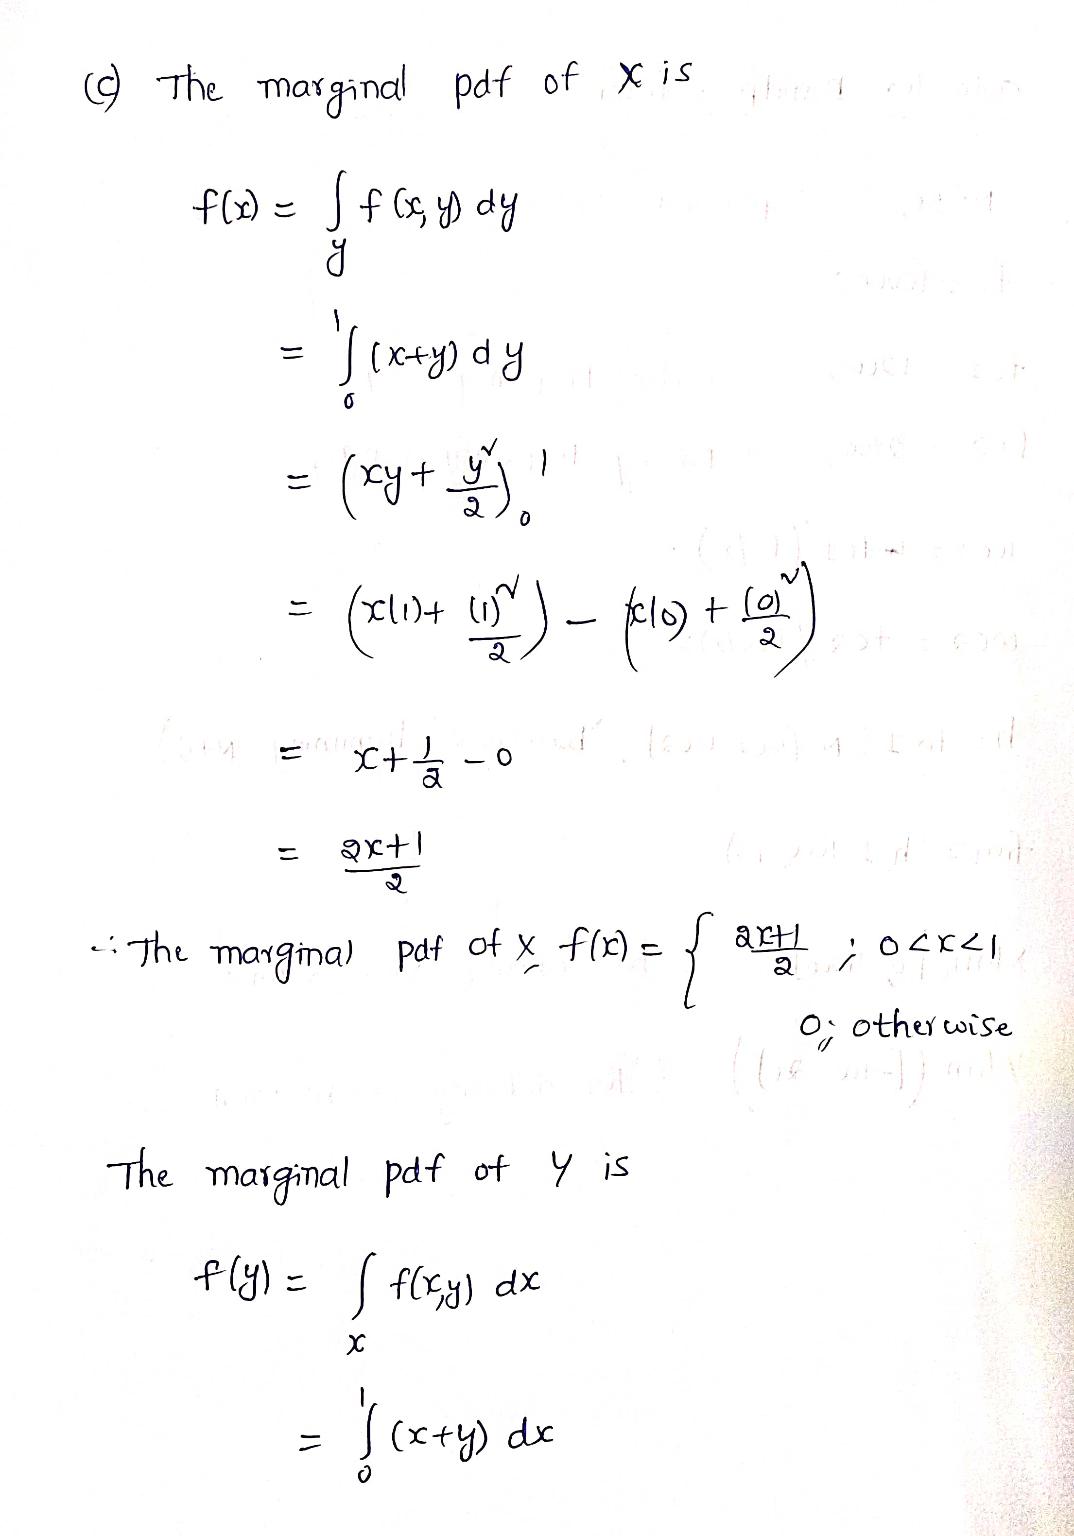 (c) The marginal pdf of X is
f(x) = ∫_y f(x, y) dy
= ∫_0^1 (x+y) dy
= (xy + y²/2)_0^1
= (x(1) + (1)²/2) - (x(0) + (0)²/2)
= x + 1/2 - 0
= 2x+1/2
∴ The marginal pdf of X f(x) = { 2x+1/2 ; 0<x<1
0; otherwise
The marginal pdf of Y is
f(y) = ∫_x f(x,y) dx
= ∫_0^1 (x+y) dx